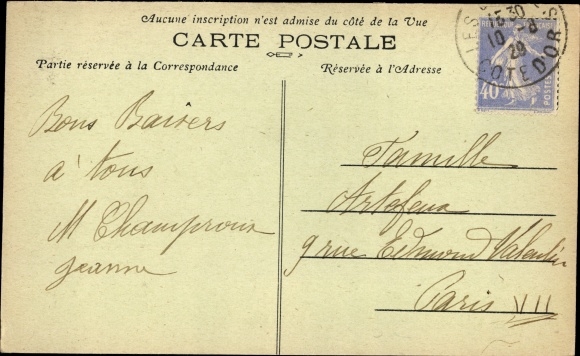 Aucune inscription n'est admise du côté de la Vue
CARTE POSTALE
Partie réservée à la Correspondance
Réservée à l'Adresse
Bons Baisers
a tous
M Champroux
Jeanne
Famille
Artefeux
9 rue Edmond Valentin
Paris VII
REPUBLIQUE FRANCAISE
40
POSTES
15 30
10 -8
COTE D'OR